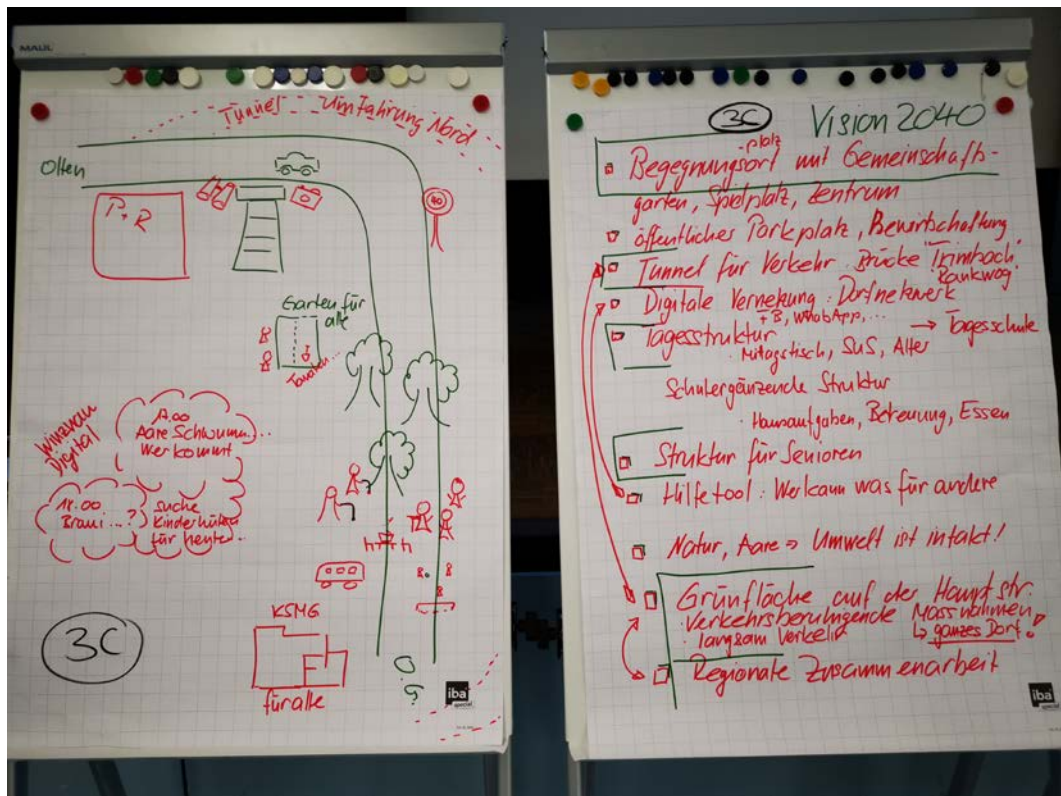 MAUL
Tunnel Umfahrung Nord
Olten
P+R
40
Garten für
alle
Tomaten...
Winznau
Digital
17.00
Aare Schwumm...
Wer kommt
18.00
Braui...?
suche
Kinderhüten
für heute...
KSMG
für alle
3C
iba
3C
Vision 2040
Begegnungsort mit Gemeinschaft-
platz
garten, Spielplatz, Zentrum
öffentliches Parkplatz, Bewirtschaftung
Tunnel für Verkehr. Brücke "Trimbach"
Rankwog
Digitale Vernetzung: Dorfnetzwerk
FB, WhatsApp,...
Tagesstruktur → Tagesschule
Mittagstisch, SuS, Alter
Schulergänzende Struktur
Hausaufgaben, Betreuung, Essen
Struktur für Senioren
Hilfetool: Wer kann was für andere
Natur, Aare ⇒ Umwelt ist intakt!
Grünfläche auf der Hauptstr.
Verkehrsberuhigende Massnahmen
langsam Verkehr ↳ ganzes Dorf!
Regionale Zusammenarbeit
iba